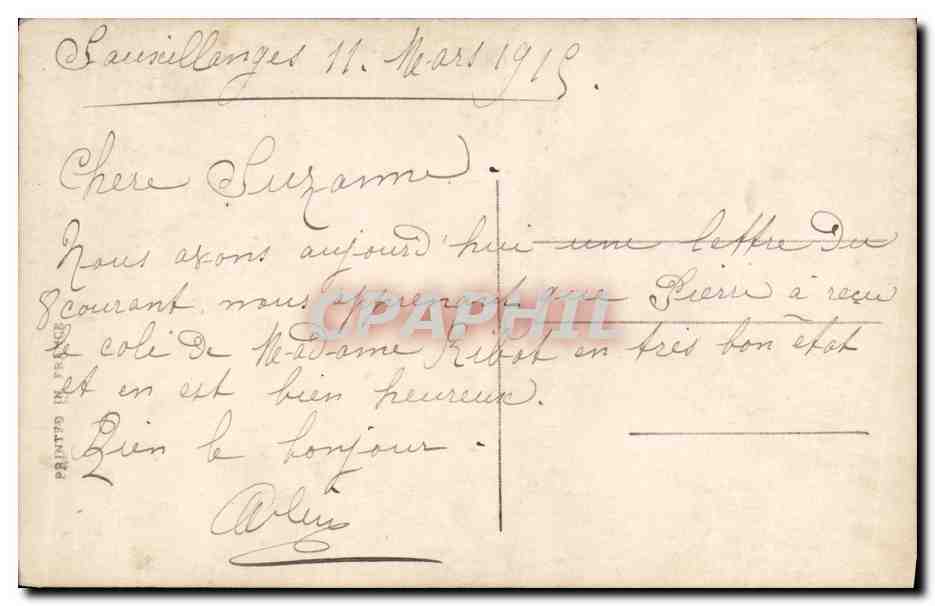 Sauxillanges 11. Mars 1915.
Chere Suzanne.
Nous avons aujourd'hui une lettre du
8 courant nous apprenant que Pierre à reçu
le coli de Madame Ribot en très bon état
et en est bien heureux.
Bien le bonjour.
PRINTED IN FRANCE
CPAPHIL